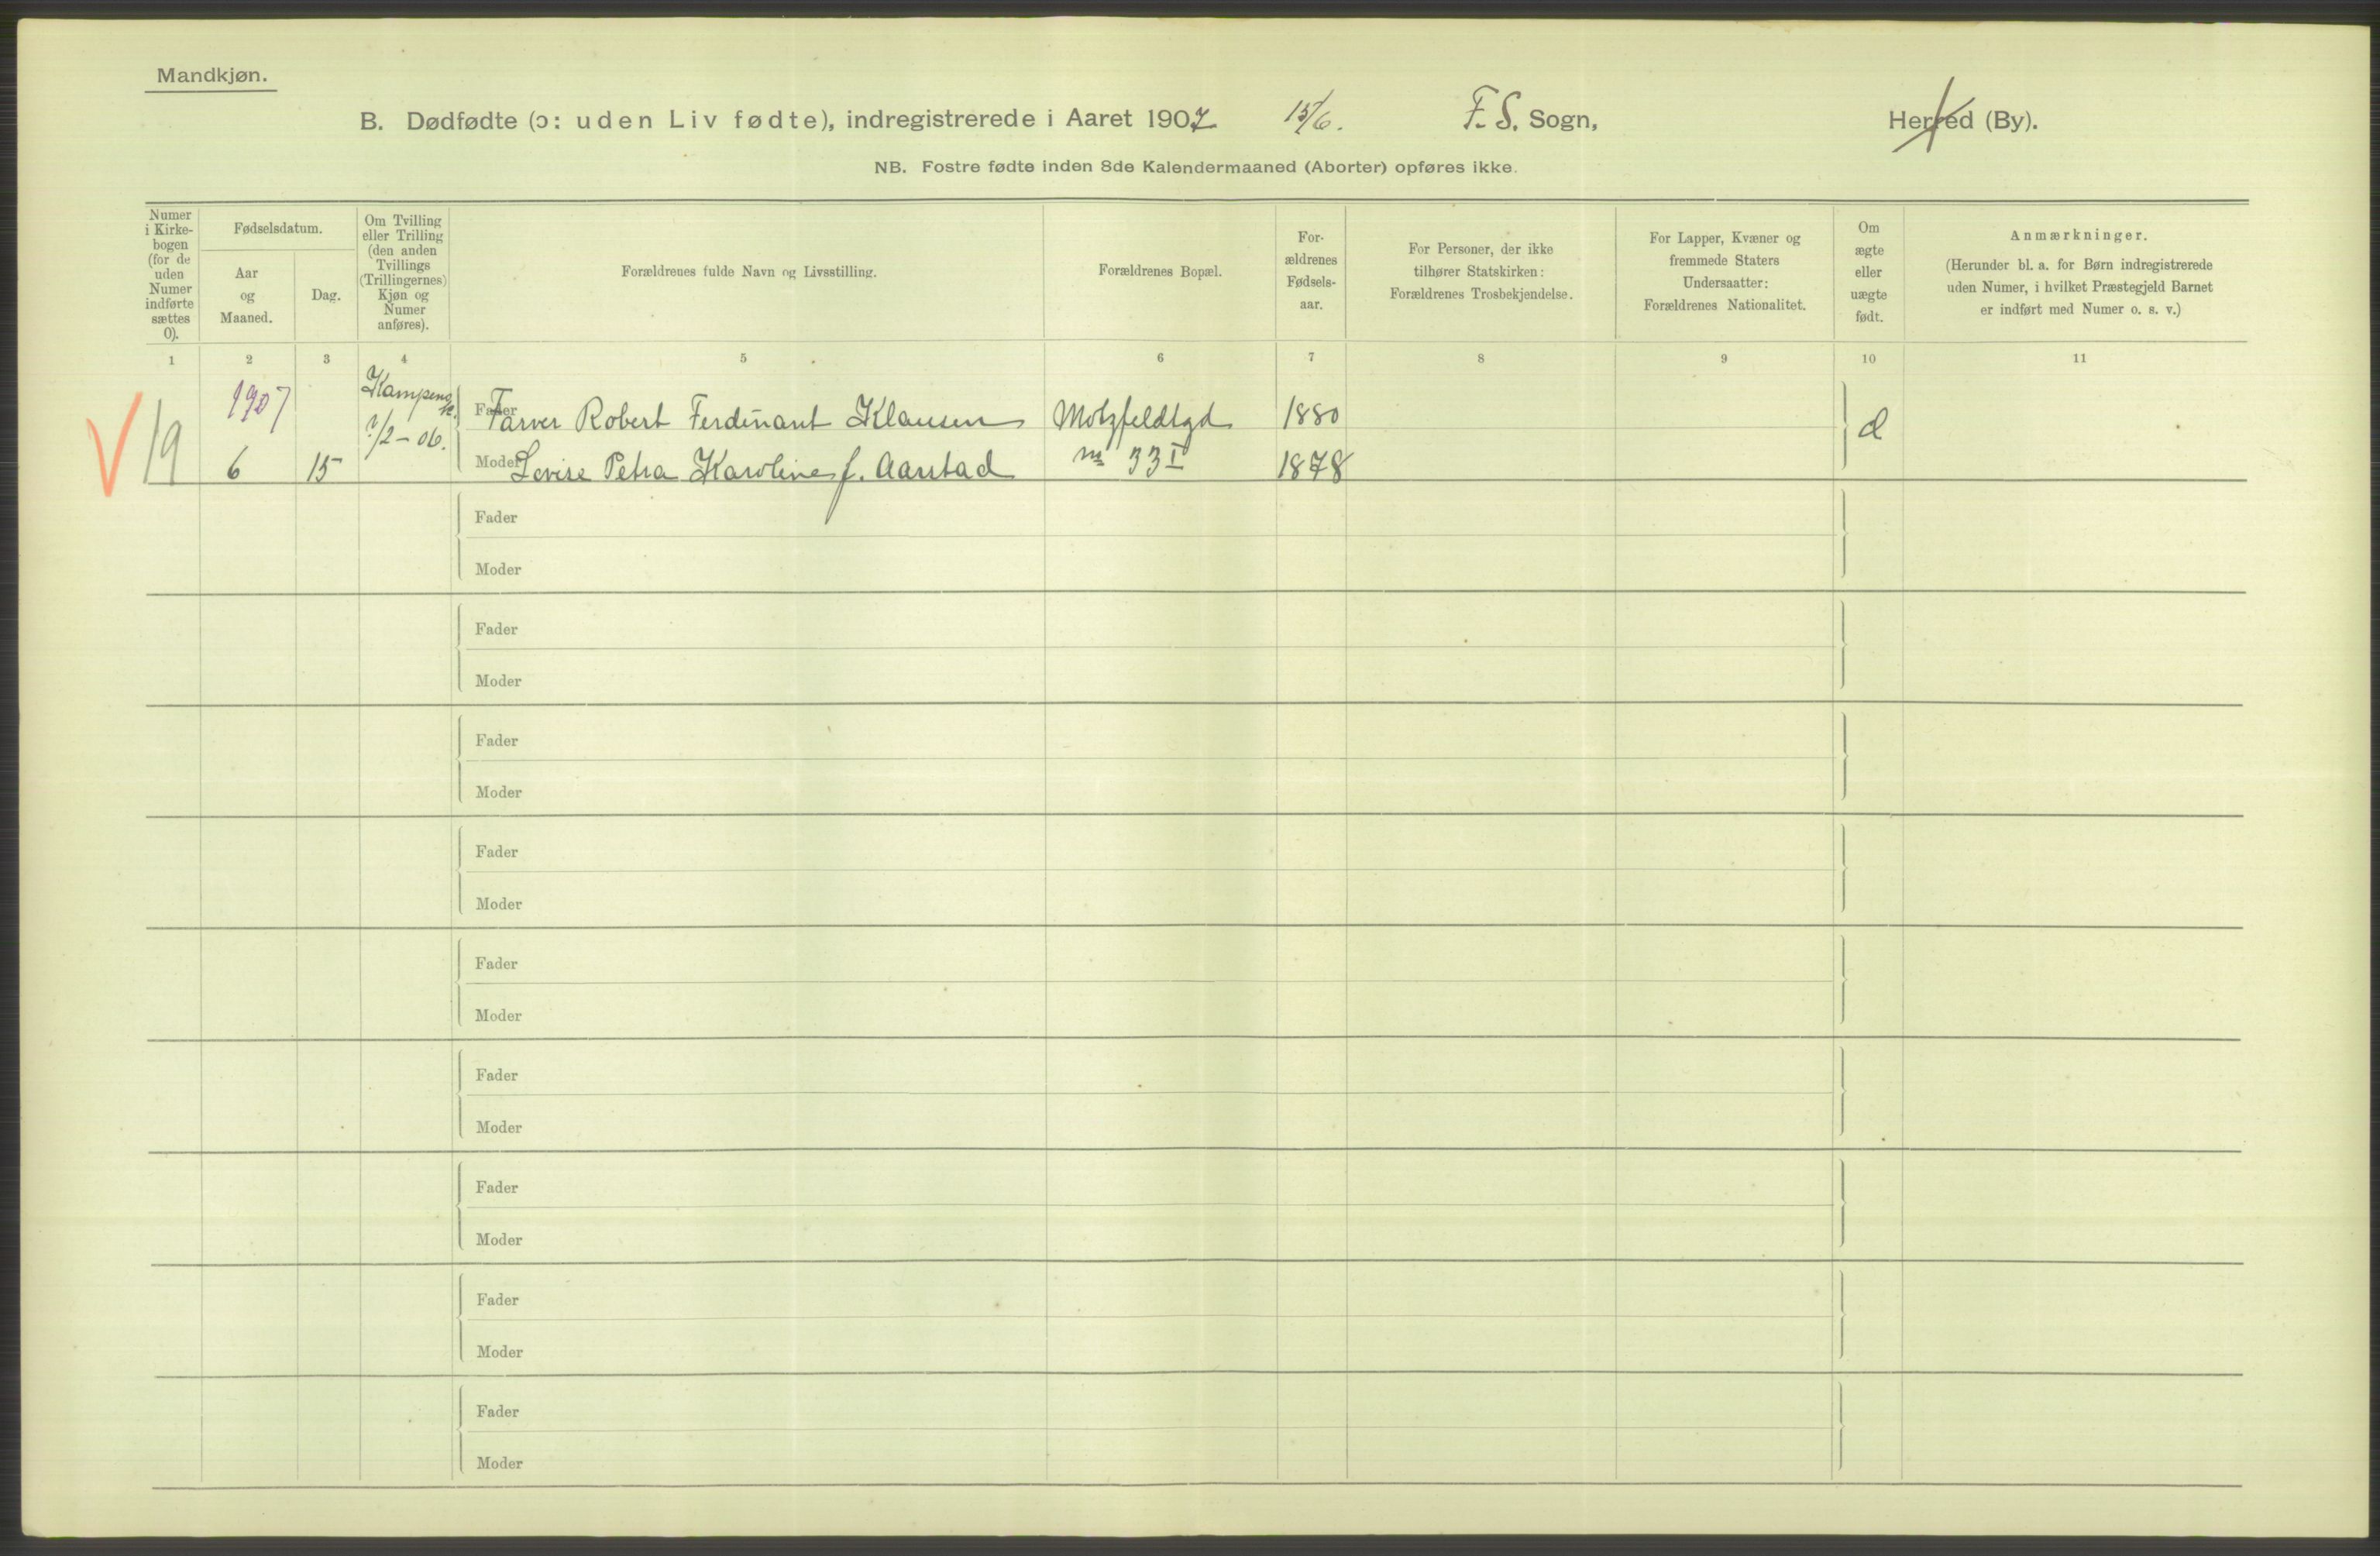 Mandkjøn.
B. Dødfødte (ɔ: uden Liv fødte), indregistrerede i Aaret 1907 15/6. F. S. Sogn, Herred (By).
NB. Fostre fødte inden 8de Kalendermaaned (Aborter) opføres ikke.
Numer i Kirke-bogen (for de uden Numer indførte sættes 0).
Fødselsdatum.
Aar og Maaned.
Dag.
Om Tvilling eller Trilling (den anden Tvillings (Trillingernes) Kjøn og Numer anføres).
Forældrenes fulde Navn og Livsstilling.
Forældrenes Bopæl.
For-ældrenes Fødsels-aar.
For Personer, der ikke tilhører Statskirken: Forældrenes Trosbekjendelse.
For Lapper, Kvæner og fremmede Staters Undersaatter: Forældrenes Nationalitet.
Om ægte eller uægte født.
Anmærkninger.
(Herunder bl. a. for Børn indregistrerede uden Numer, i hvilket Præstegjeld Barnet er indført med Numer o. s. v.)
1 2 3 4 5 6 7 8 9 10 11
V 19 1907 Kampens k. Fader Farver Robert Ferdinant Klausen Motzfeldtgd 1880 d
6 15 /2-06. Moder Lovise Petra Karoline f. Aarstad nr 33 I 1878
Fader
Moder
Fader
Moder
Fader
Moder
Fader
Moder
Fader
Moder
Fader
Moder
Fader
Moder
Fader
Moder
Fader
Moder